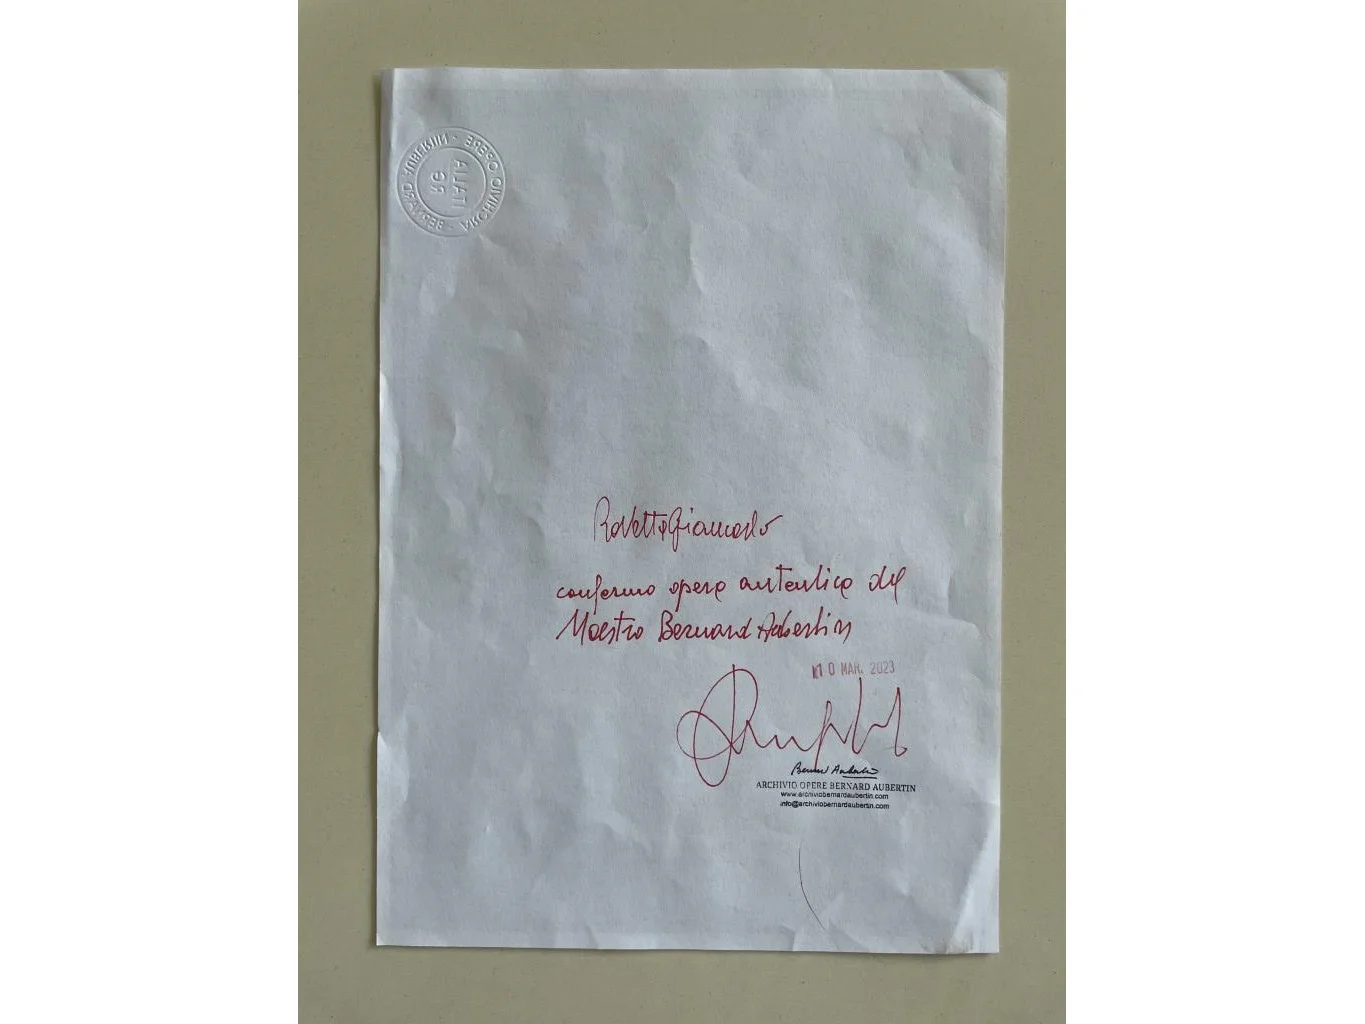 ARCHIVIO OPERE - BERNARD AUBERTIN -
ITALIA
Rovetta Giancarlo
confermo opera autentica del
Maestro Bernard Aubertin
10 MAR. 2023
Bernard Aubertin
ARCHIVIO OPERE BERNARD AUBERTIN
www.archiviobernardaubertin.com
info@archiviobernardaubertin.com